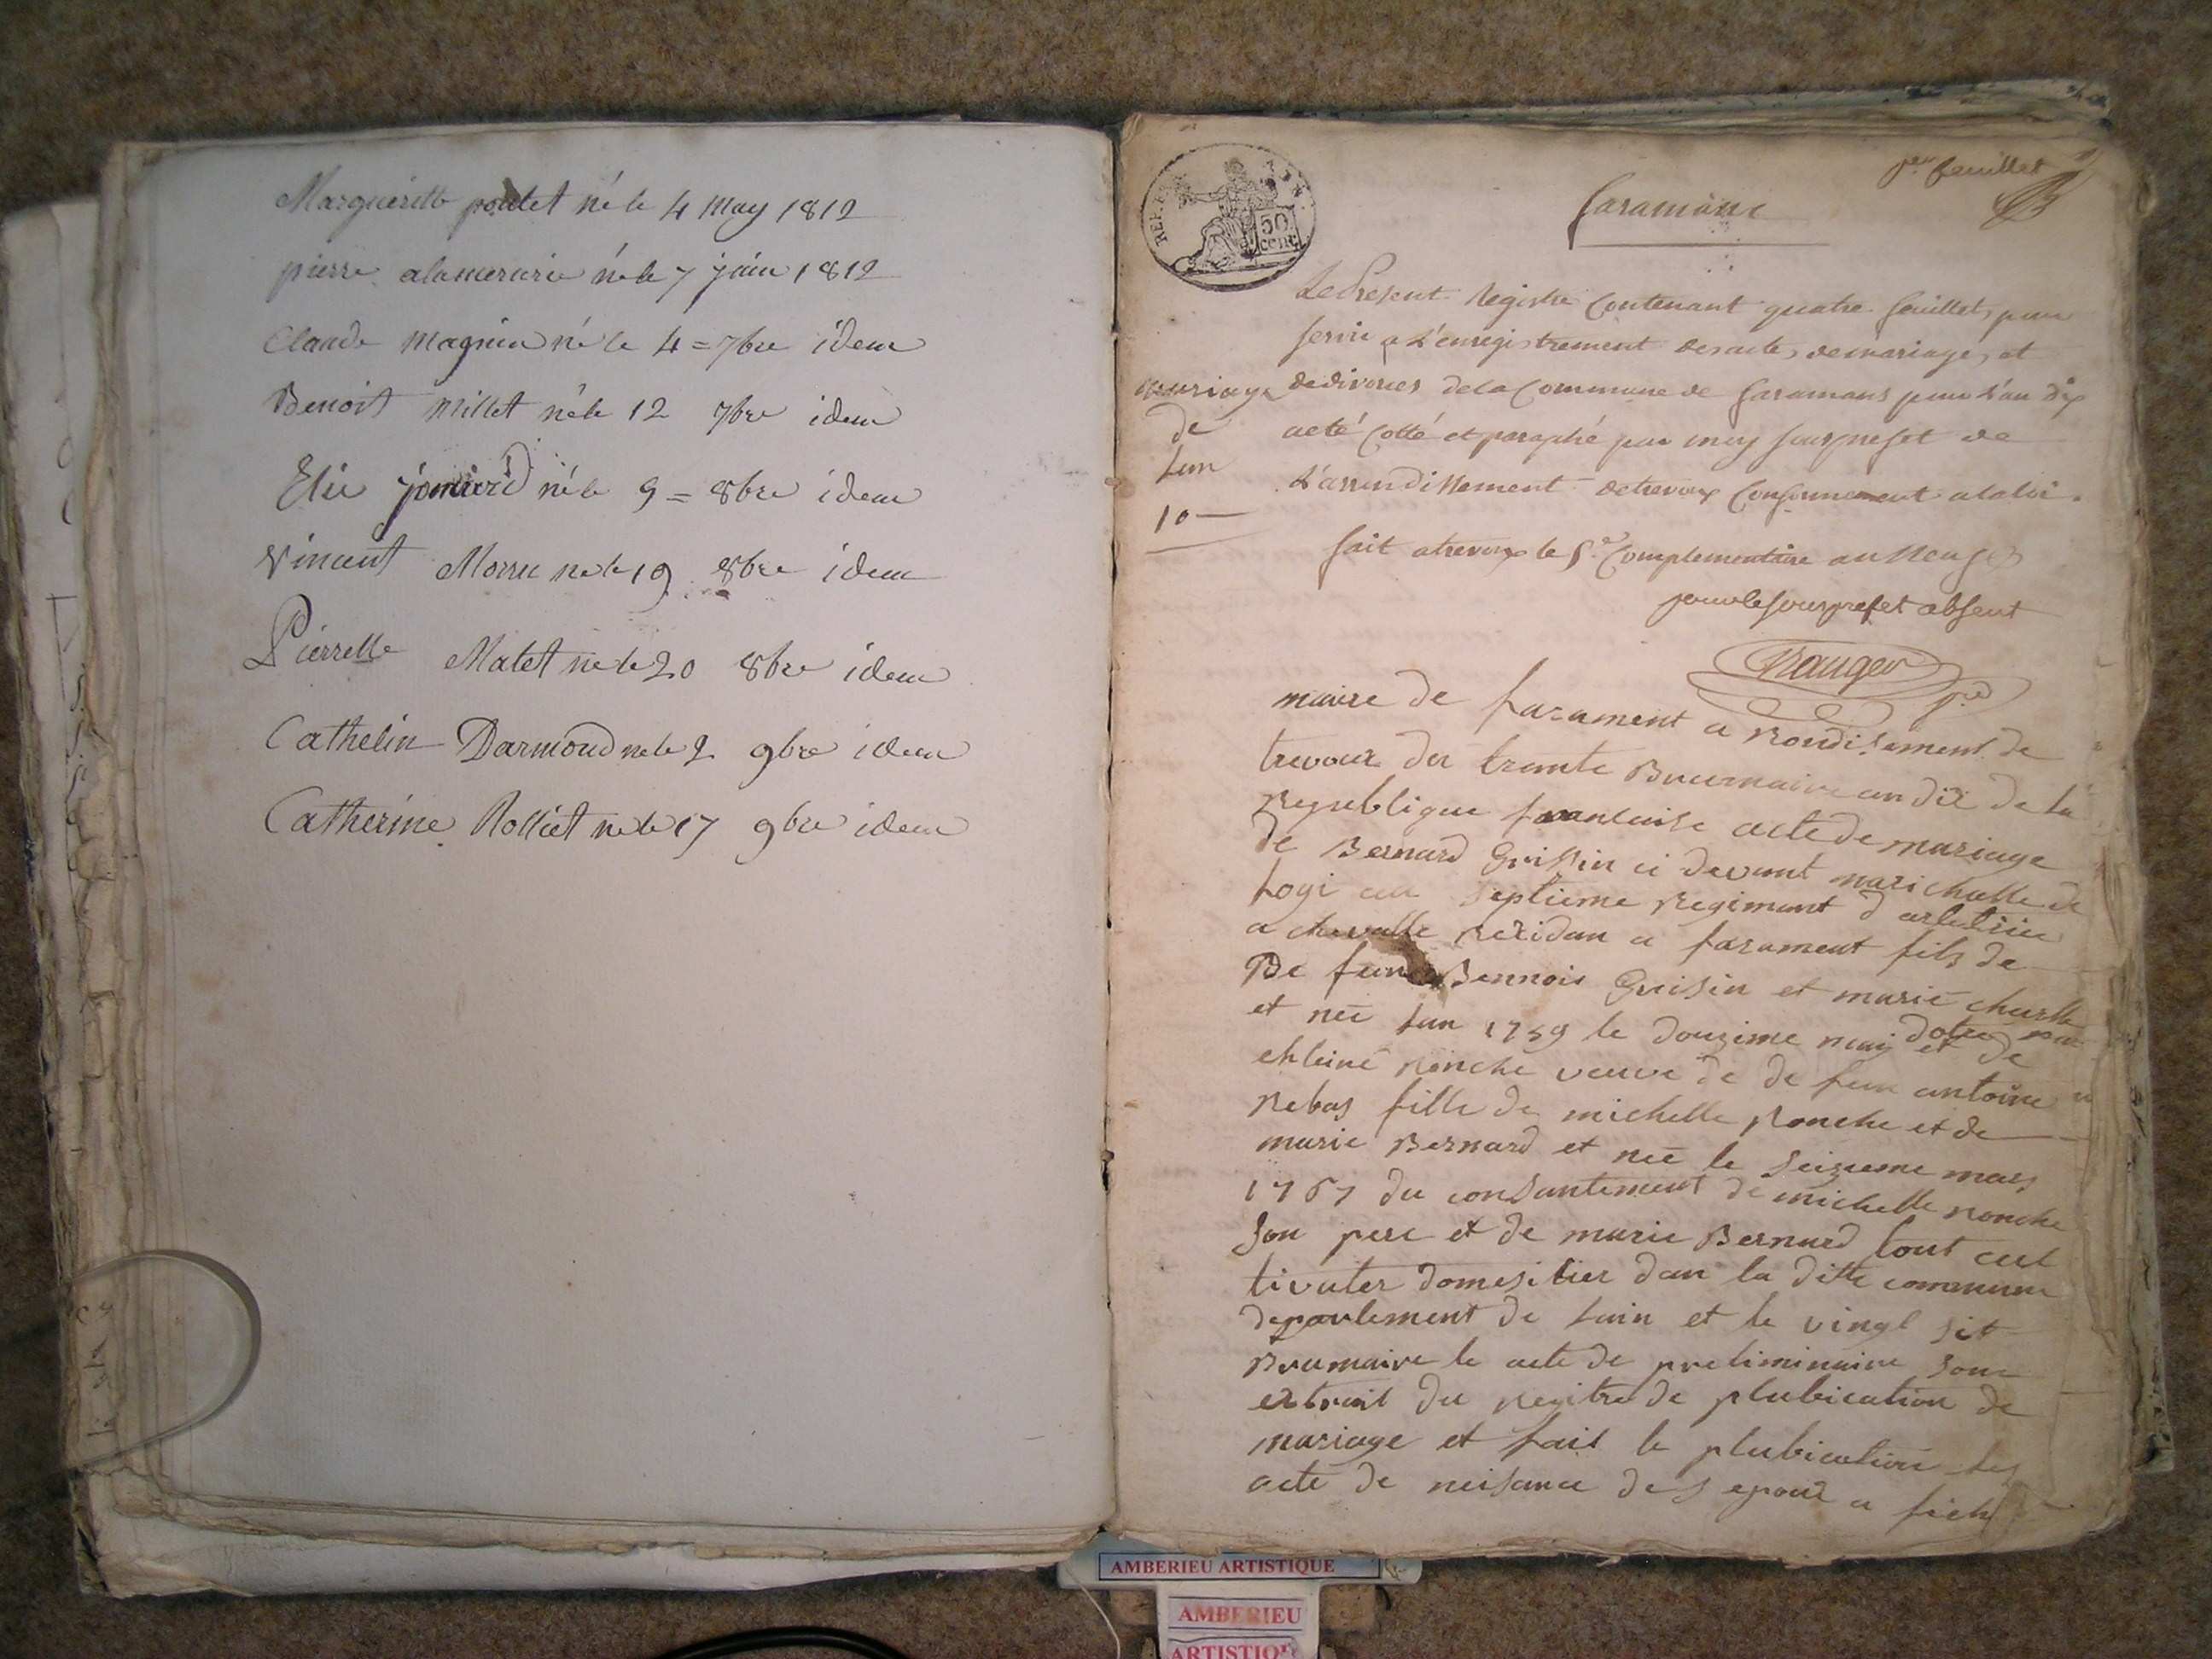 Margueritte poulet né le 4 may 1812
pierre né le 7 juin 1812
Claude Magnin né le 4 = 7bre idem
Benoit Millet né le 12 7bre idem
Elie né le 9 = 8bre idem
Vincent né le 19 8bre idem
Pierrette Matet né le 20 8bre idem
Cathelin Darmoud né le 2 9bre idem
Catherine Rolliet né le 17 9bre idem
1er feuillet
faramans
REP. FRA
50 cent.
Le Present Registre Contenant quatre feuillets pour
servir a L'enregistrement des actes de mariages et
de divorces de la Commune de faramans pour L'an dix
acté Cotté et paraphé par moy Sousprefet de
L'arrondissement de trevoux Conformement a la loi.
mariage
de
lan
10
fait a trevoux le 5e Complementaire an neuf
pour le sousprefet absent
maire de farament a Rondisement de
trevoux du trante Brumaire an dix de la
Republique franseise acte de mariage
de Bernard Grissin ci devant marichalle de
logi au septieme Regimant d arletirie
a chevalle rezidan a farament fils de
De feue Bennois Grisin et marie
et neé lan 1759 le douzime may et de
etleine Ronche veuve de de feue antoine
Rebas fille de michelle Ronche et de
marie Bernard et neé le seizieme mars
1767 du consantement de michelle Ronche
son pere et de marie Bernard tout cul
tivater domesilier dan la ditte commune
departement de lain et le vingt sit
Brumaire le acte de preliminaire sont
extrait du regitre de plubication de
mariage et fait la plubication les
acte de neisance des epoux a fich
AMBERIEU ARTISTIQUE
AMBERIEU
ARTISTIQUE